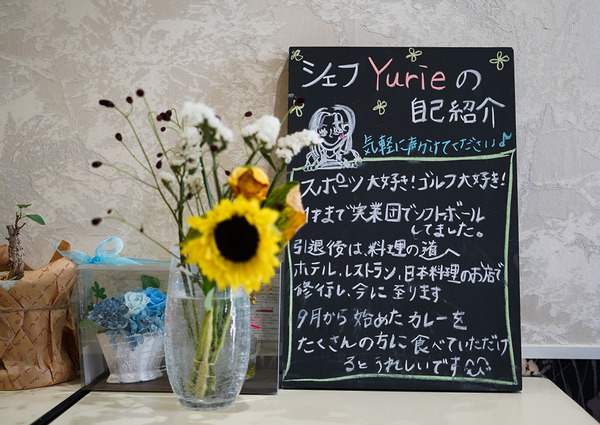 シェフ Yurieの
自己紹介
気軽に声がけてください♪
スポーツ大好き！ゴルフ大好き！
年まで実業団でソフトボール
してました。
引退後は、料理の道へ
ホテル、レストラン、日本料理のお店で
修行し、今に至ります
9月から始めたカレーを
たくさんの方に食べていただけ
るとうれしいです